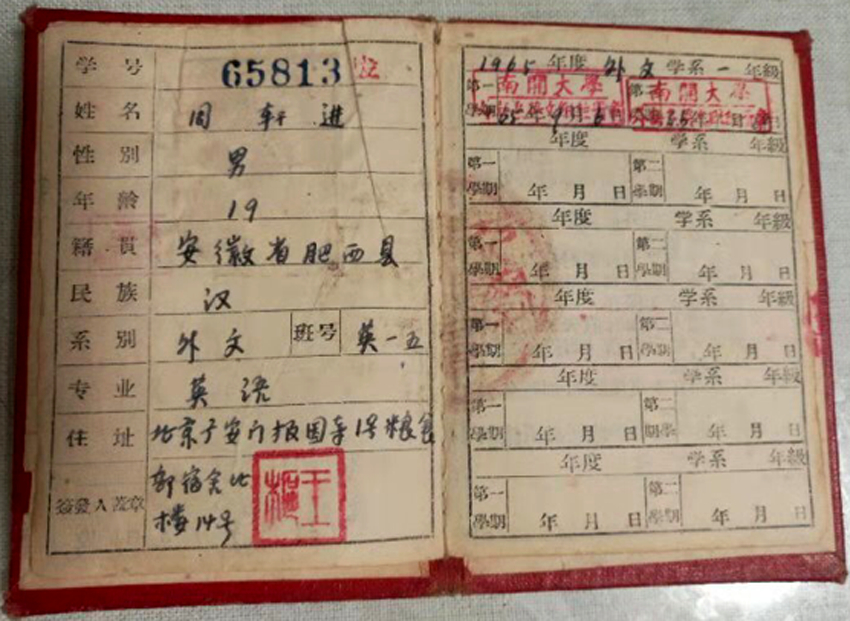 学号 65813 发
姓名 周轩进
性别 男
年龄 19
籍貫 安徽省肥西县
民族 汉
系别 外文 班号 英一五
专业 英语
住址 北京广安门报国寺1号粮食
部宿舍北
簽發人蓋章 楼14号
1965年度 外文 学系 一 年級
第一 南開大學 第二 南開大學
65年9月
年度 学系 年級
第一 第二
學期 年 月 日 學期 年 月 日
年度 学系 年級
第一 第二
學期 年 月 日 學期 年 月 日
年度 学系 年級
第一 第二
學期 年 月 日 學期 年 月 日
年度 学系 年級
第一 第二
學期 年 月 日 學期 年 月 日
年度 学系 年級
第一 第二
學期 年 月 日 學期 年 月 日